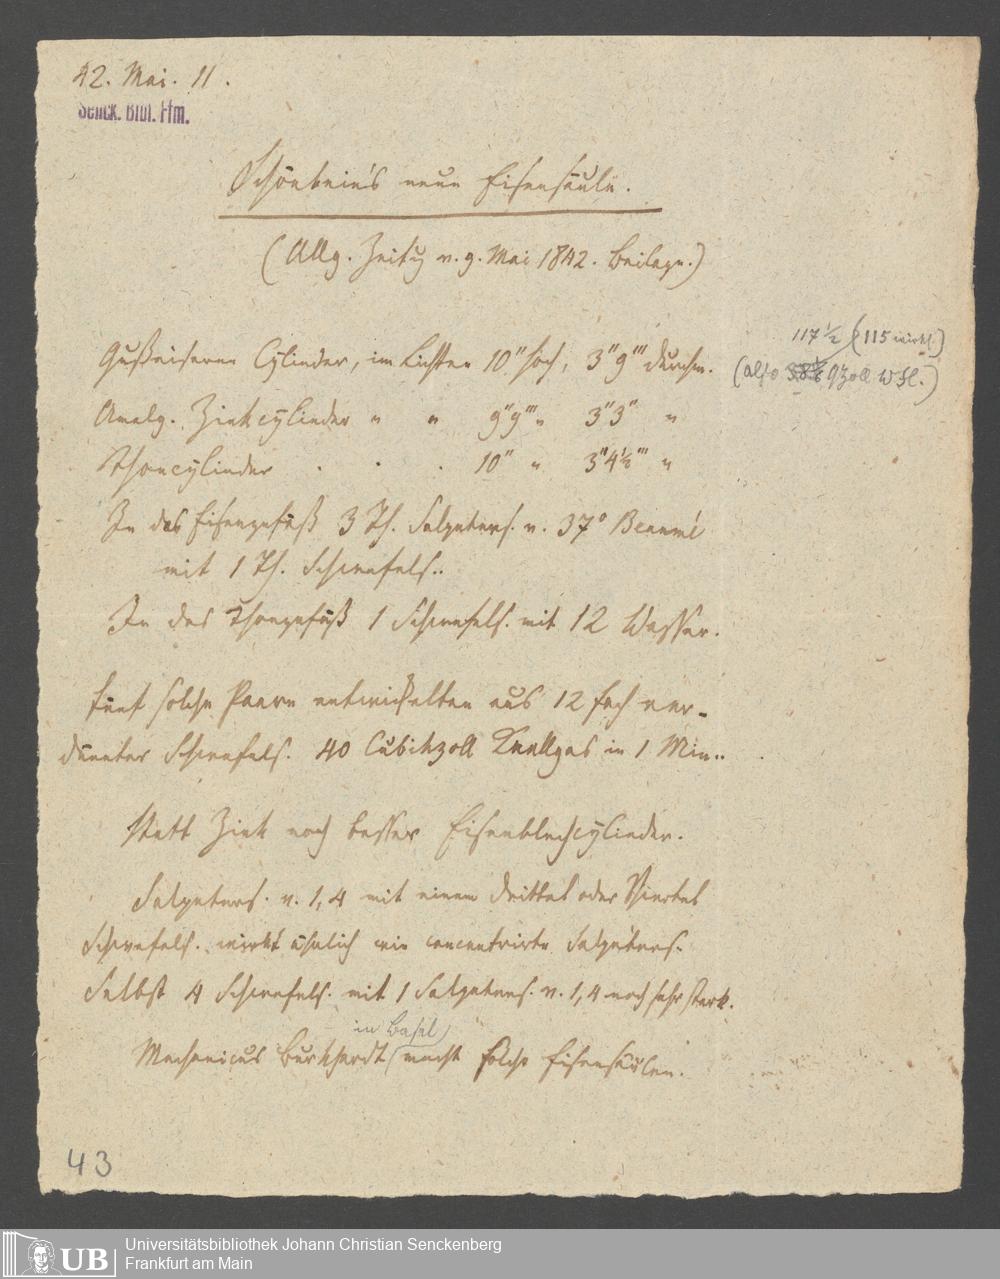 42. Mai. 11.
Senck. Bibl. Ffm.
Schönbein's neue Eisensäule.
(Allg. Zeitg v. 9. Mai 1842. Beilage.)
117 1/2 (115 wirkl.)
Gußeiserne Cylinder, im Lichten 10" hoch, 3"9''' durchm. (also Qzoll wfl.)
Amalg. Zinkcylinder " " 9"9''' " 3"3" "
Thoncylinder . . . 10" " 3"4½''' "
In das Eisengefäß 3 Th. Salpeters. v. 37° Beaumé
mit 1 Th. Schwefels..
In das Thongefäß 1 Schwefels. mit 12 Wasser.
Fünf solche Paare entwickelten aus 12 fach ver-
dünnter Schwefels. 40 Cubikzoll Knallgas in 1 Min..
Statt Zink noch besser Eisenblechcylinder.
Salpeters. v. 1,4 mit einem Drittel oder Viertel
Schwefels. wirkt ähnlich wie concentrirte Salpeters.
Selbst 4 Schwefels. mit 1 Salpeters. v. 1,4 noch sehr stark.
in Basel
Mechanicus Burkhardt macht solche Eisensäulen.
43
UB Universitätsbibliothek Johann Christian Senckenberg
Frankfurt am Main